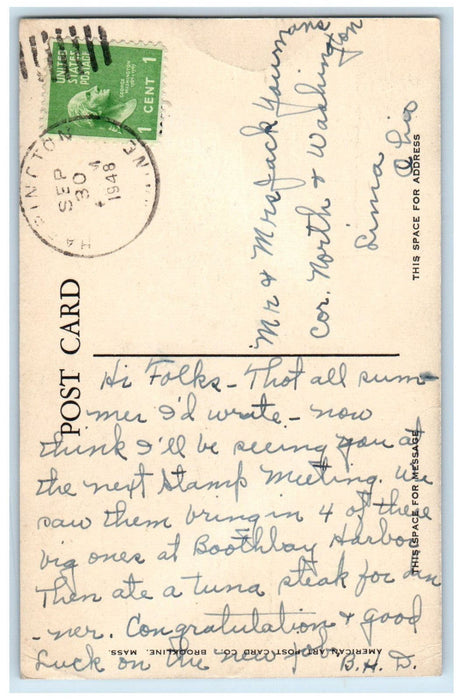 UNITED
STATES
POSTAGE
GEORGE
WASHINGTON
1 CENT 1
SEP
30
1948
POST CARD
THIS SPACE FOR ADDRESS
Mr & Mrs Jack Youmans
Cor. North & Washington
Lima
Ohio
Hi Folks - Thot all sum-
mer I'd write - now
think I'll be seeing you at
the next Stamp Meeting. We
saw them bring in 4 of these
big ones at Boothbay Harbor
Then ate a tuna steak for din
-ner. Congratulation & good
Luck on the new job.
B.H.D.
THIS SPACE FOR MESSAGE
AMERICAN ART POST CARD CO., BROOKLINE, MASS.